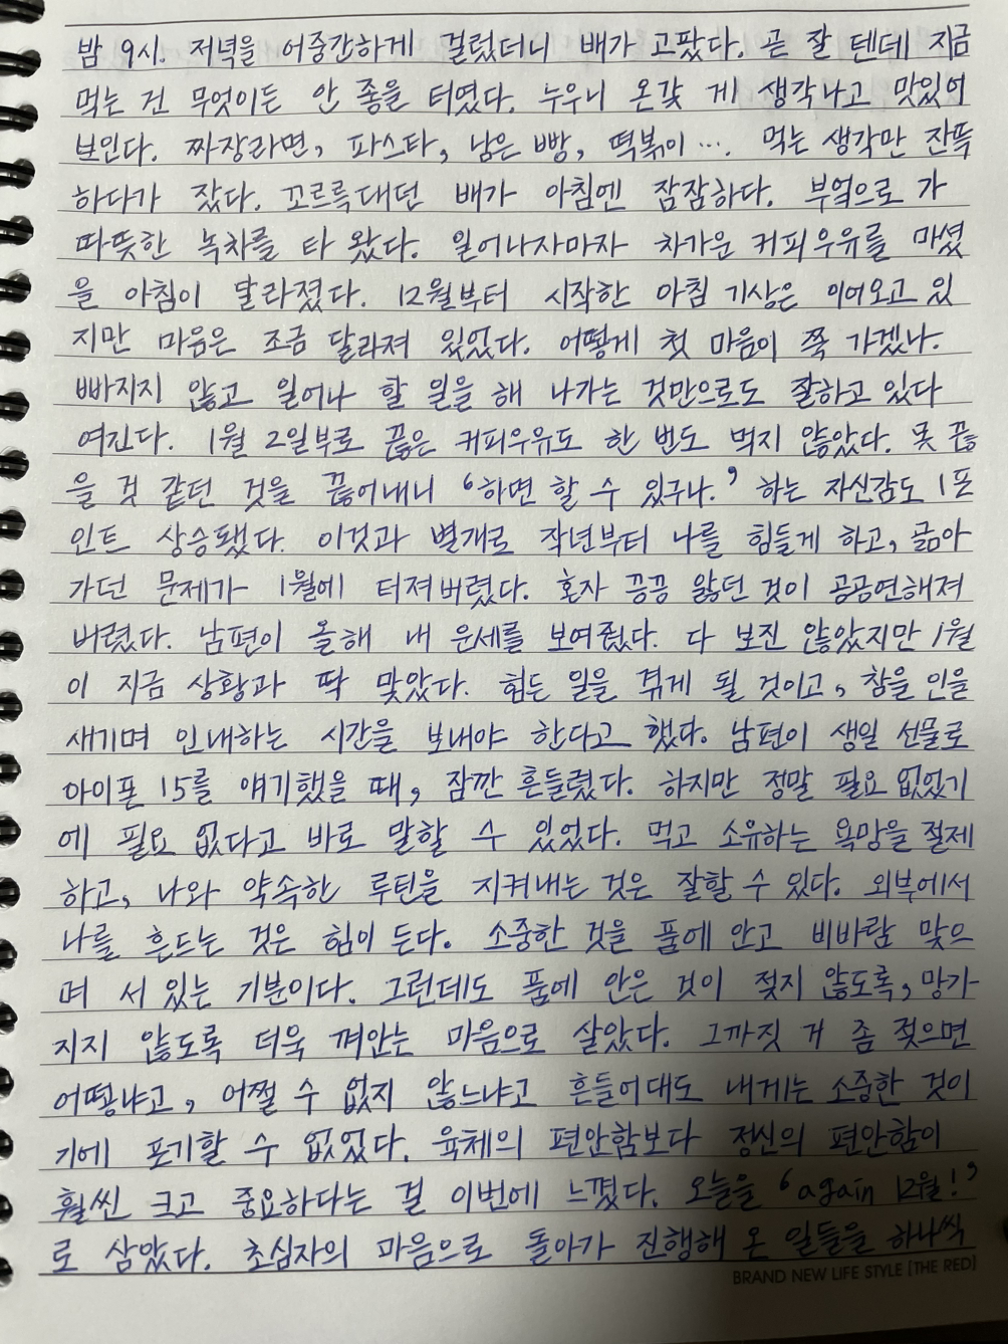 밤 9시. 저녁을 어중간하게 걸렀더니 배가 고팠다. 곧 잘 텐데 지금
먹는 건 무엇이든 안 좋을 터였다. 누우니 온갖 게 생각나고 맛있어
보인다. 짜장라면, 파스타, 남은 빵, 떡볶이 …. 먹는 생각만 잔뜩
하다가 잤다. 꼬르륵대던 배가 아침엔 잠잠하다. 부엌으로 가
따뜻한 녹차를 타 왔다. 일어나자마자 차가운 커피우유를 마셨
을 아침이 달라졌다. 12월부터 시작한 아침 기상은 이어오고 있
지만 마음은 조금 달라져 있었다. 어떻게 첫 마음이 쭉 가겠나.
빠지지 않고 일어나 할 일을 해 나가는 것만으로도 잘하고 있다
여긴다. 1월 2일부로 끊은 커피우유도 한 번도 먹지 않았다. 못 끊
을 것 같던 것을 끊어내니 ‘하면 할 수 있구나.’ 하는 자신감도 1포
인트 상승됐다. 이것과 별개로 작년부터 나를 힘들게 하고, 곪아
가던 문제가 1월에 터져버렸다. 혼자 끙끙 앓던 것이 공공연해져
버렸다. 남편이 올해 내 운세를 보여줬다. 다 보진 않았지만 1월
이 지금 상황과 딱 맞았다. 힘든 일을 겪게 될 것이고, 참을 인을
새기며 인내하는 시간을 보내야 한다고 했다. 남편이 생일 선물로
아이폰 15를 얘기했을 때, 잠깐 흔들렸다. 하지만 정말 필요 없었기
에 필요 없다고 바로 말할 수 있었다. 먹고 소유하는 욕망을 절제
하고, 나와 약속한 루틴을 지켜내는 것은 잘할 수 있다. 외부에서
나를 흔드는 것은 힘이 든다. 소중한 것을 품에 안고 비바람 맞으
며 서 있는 기분이다. 그런데도 품에 안은 것이 젖지 않도록, 망가
지지 않도록 더욱 껴안는 마음으로 살았다. 그까짓 거 좀 젖으면
어떻냐고, 어쩔 수 없지 않느냐고 흔들어대도 내게는 소중한 것이
기에 포기할 수 없었다. 육체의 편안함보다 정신의 편안함이
훨씬 크고 중요하다는 걸 이번에 느꼈다. 오늘을 ‘again 12월!’
로 삼았다. 초심자의 마음으로 돌아가 진행해 온 일들을 하나씩
BRAND NEW LIFE STYLE [THE RED]